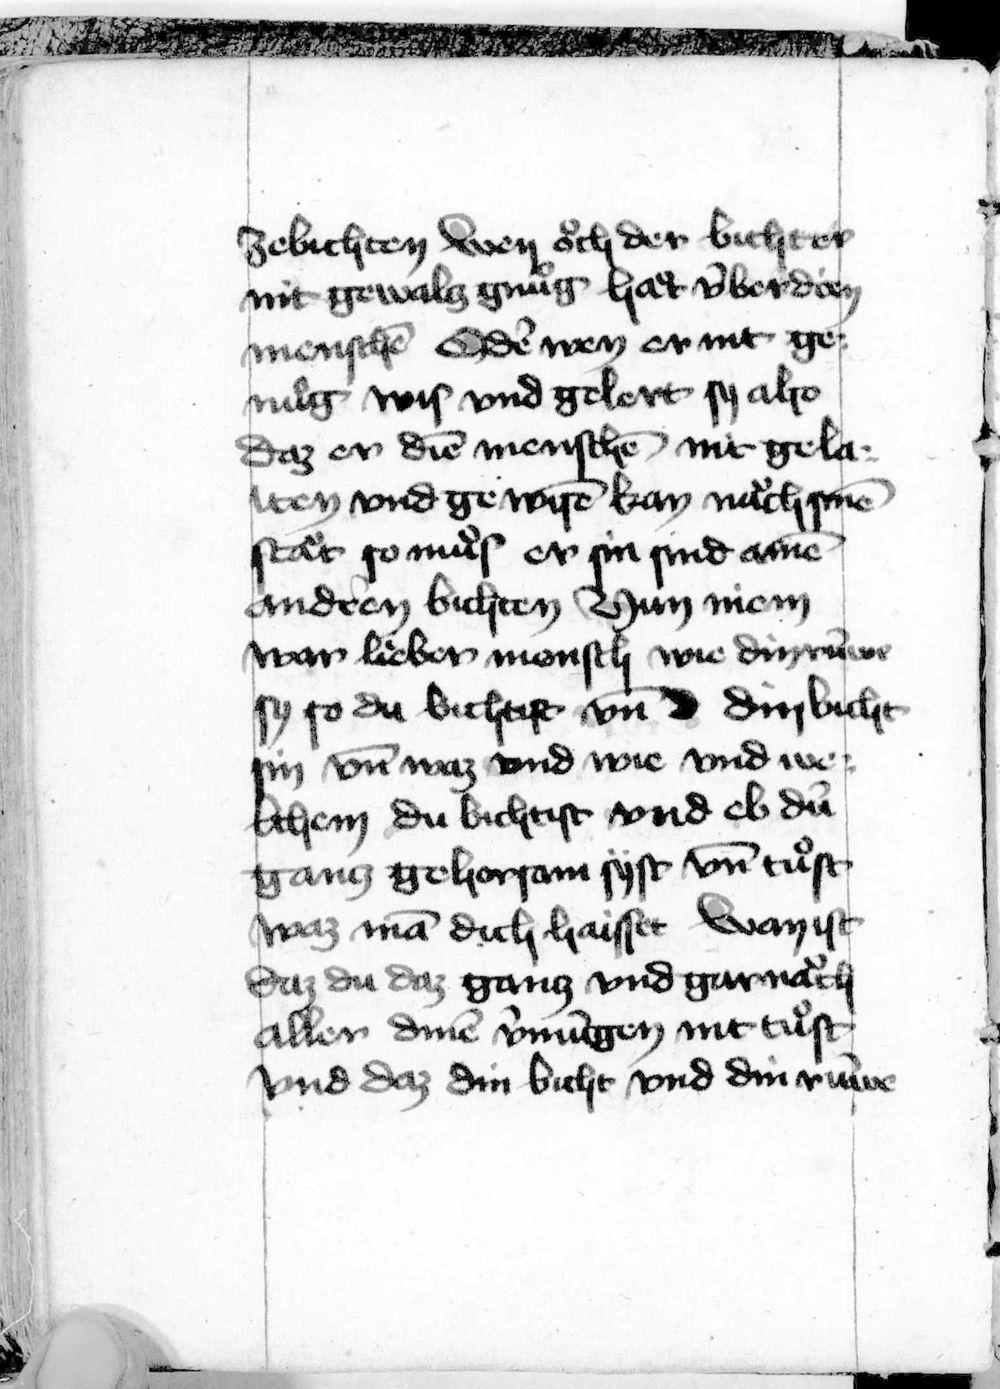 zebichten Wen oͮch der bichter
nit gewalg gnuͦg hat v̈ber dien
menschē Odē wen er nit ge-
nuͦg wis vnd gelert sy also
daz er diē menschē nit gela-
iten vnd ge wisē kan nach sinē
stat so muͦs er sin sind ainē
andren bichten Nun niem
war lieber mensch wie din rüwe
sy so du bichtist vn̄ din bicht
sin vn̄ waz vnd wie vnd we-
lchem du bichtist vnd ob du
gancz gehorsam syist vn̄ tuͦst
waz mā dich haisset Wan ist
daz du daz gancz vnd gar nach
aller dinē v̄mügen nit tuͦst
vnd daz din bicht vnd din rüwe